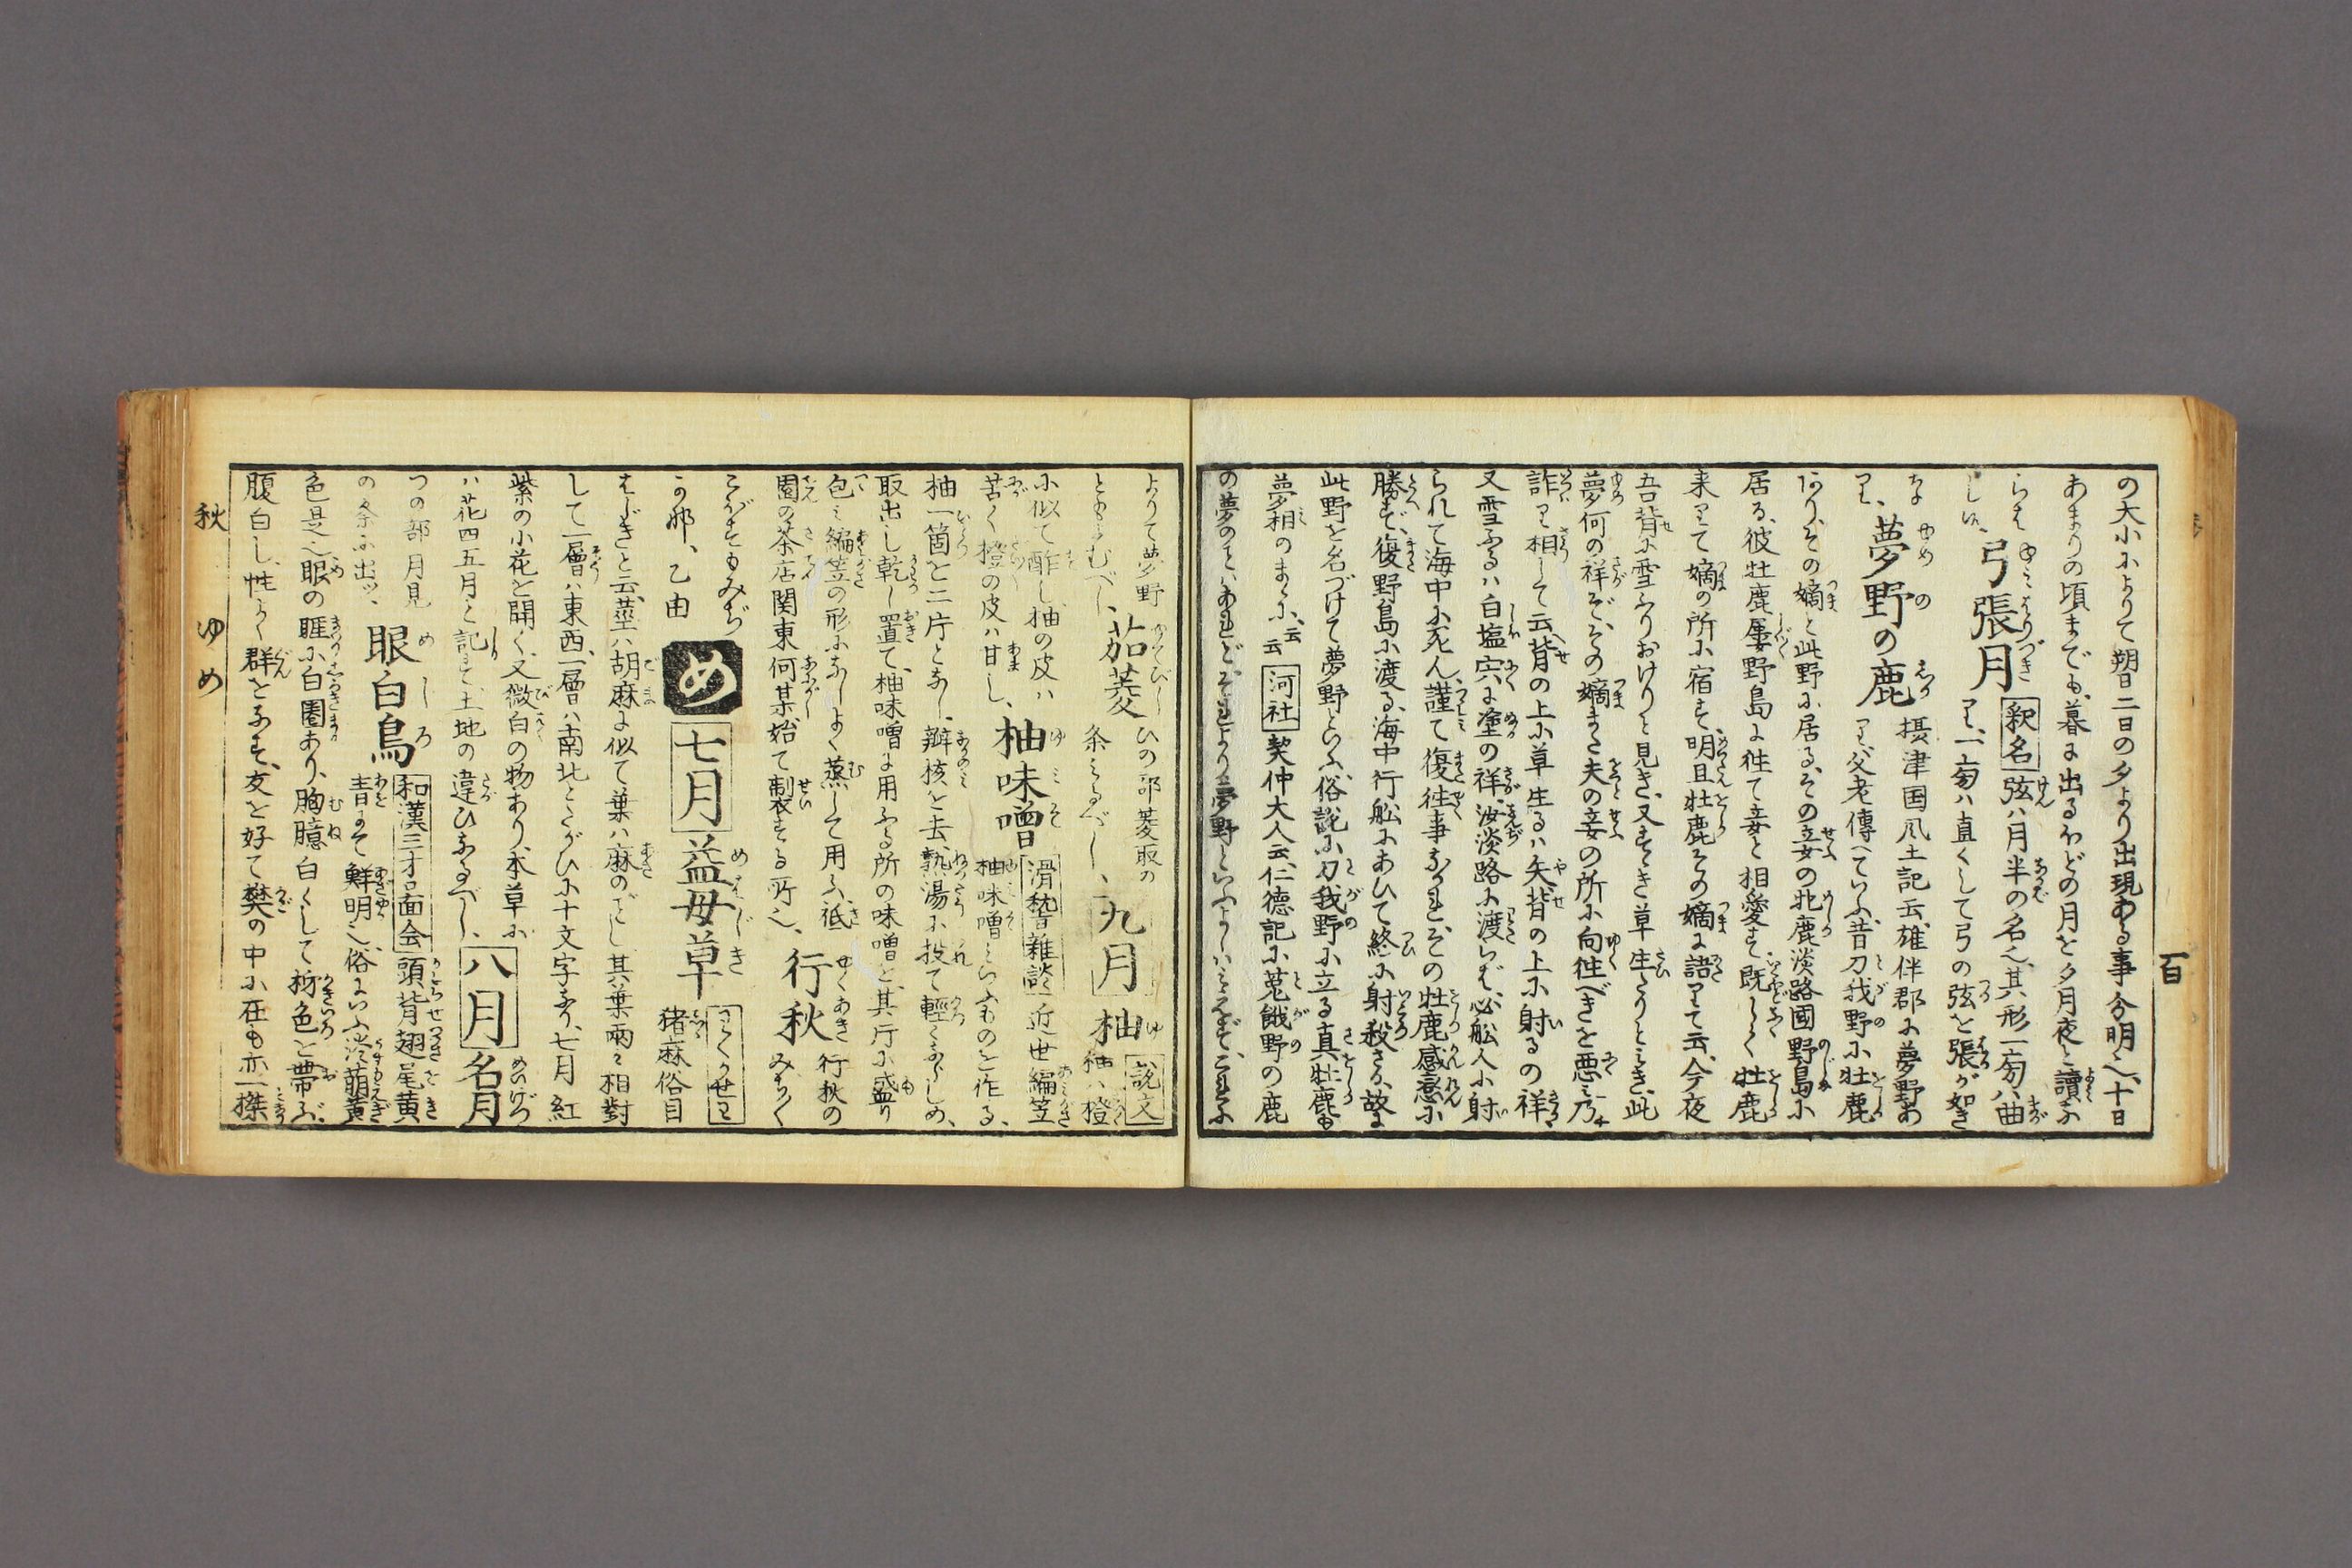 の大小によりて朔日二日の夕より出現ある事分明也、十日
あまりの頃までも、暮に出るほどの月を夕月夜と讀ふ
らし、弓張月 釈名 弦ハ月半の名也、其形一旁ハ曲
り、一旁ハ直くして弓の弦を張が如き
夢野の鹿 摂津国風土記云、雄伴郡に夢野あ
り、父老傳へていふ、昔刀我野に牡鹿
ありその嫡と此野に居る、その妾の牝鹿淡路國野島に
居る、彼牡鹿屡野島に往て妾と相愛す、既しく牡鹿
来りて嫡の所に宿す、明旦牡鹿その嫡に語りて云、今夜
吾背に雪ふりおけりと見き、又すゝき草生たりと見き、此
夢何の祥ぞ、その嫡また夫の妾の所に向往べきを悪ミ、乃
詐り相して云、背の上に草生るハ矢背の上に射るの祥
又雪ふるハ白塩宍に塗の祥、汝淡路に渡らバ、必船人に射
られて海中に死ん、謹て復往事なかれ、その牡鹿感恋に
勝ず、復野島に渡る、海中行舩にあひて終に射殺さる、故に
此野を名づけて夢野といふ、俗説に刀我野に立る真牡鹿も
夢相のまゝに、云云 河社 契仲大人云、仁徳記に菟餓野の鹿
の夢のことハあれど、それより夢野といふよしハ見えず、これに
よりて夢野
茄菱 ひの部菱取の
条に見るべし、九月 柚 説文 柚ハ橙
に似て酢し、柚の皮ハ
苦く橙の皮ハ甘し、柚味噌 滑稽雑談 近世編笠
柚味噌といふものを作る、
柚一箇を二片となし、瓣核を去、熱湯に投て輕くふらしめ、
取出し乾し置て、柚味噌に用ふる所の味噌を、其片に盛り
包ミ編笠の形になしよく蒸して用ふ、祇
園の茶店関東何某始て制する所也、行秋 行秋の
みちく
さがすもみぢ
か那、乙由 め 七月 益母草
猪麻俗目
はじきと云、莖ハ胡麻に似て葉ハ麻のごとし、其葉兩々相對
して一層ハ東西、一層ハ南北とたがひに十文字なり、七月紅
紫の小花を開く、又微白の物あり、本草に
ハ花四五月と記す、土地の違ひなるべし、八月 名月
つの部月見
の条に出ツ、眼白鳥 和漢三才圖会 頭背翅尾黄
青にて鮮明也、俗にいふ淡萌黄
色是也、眼の眶に白圏あり、胸臆白くして柹色を帯ぶ、
腹白し、性よく群をなす、友を好て樊の中に在も亦一樔
秋 ゆ め
百